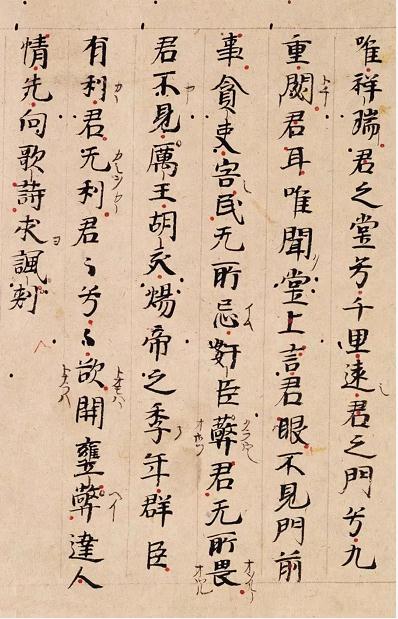 唯祥瑞君之堂兮千里遠君之門兮九
重閟君耳唯聞堂上言君眼不見門前
事貪吏害民无所忌奸臣弊君无所畏
君不見厲王胡亥煬帝之季年群臣
有利君无利君々兮々欲開壅弊達人
情先向歌詩求諷刺